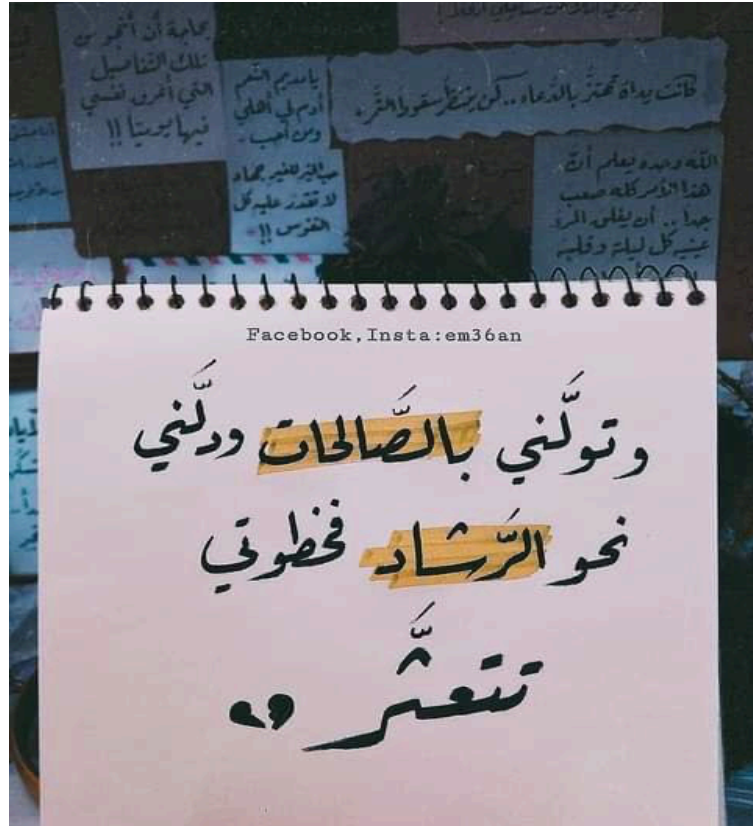 بحاجة أن أنجو من
تلك التفاصيل
التي أغرق نفسي
فيها يوميًا !!
يا مديم النعم
أدم لي أهلي
ومن أحب
لا تقدر عليه كل
النفوس !!
كانت يداهُ تهتزّ بالدّعاء .. كمن ينتظر سقوط الثمر
الله وحده يعلم أنّ
هذا الأمر كله صعب
جدا .. أن يغلق المرء
عينيه كل ليلة وقلبه
Facebook,Insta:em36an
وتولَّني بالصَّالحات ودلَّني
نحو الرَّشاد فخطوتي
تتعثَّر